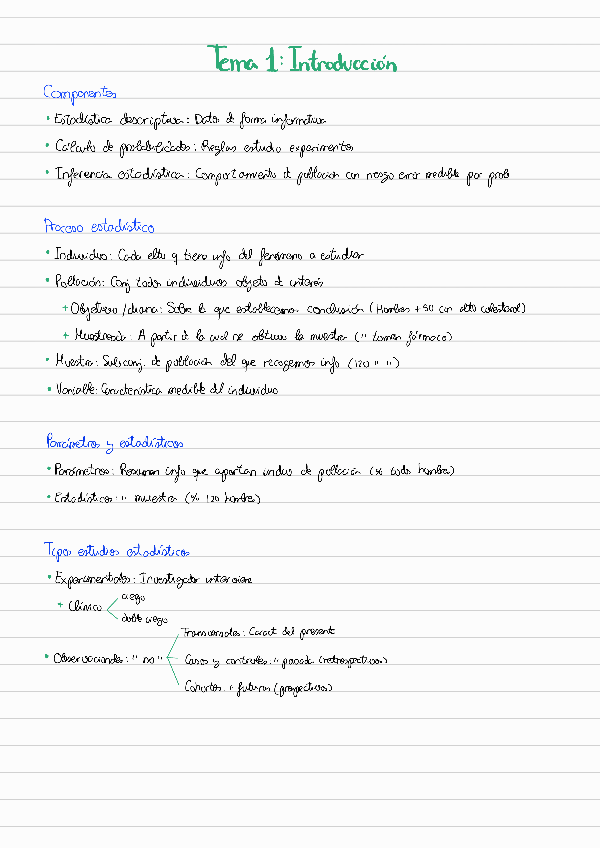 Tema 1: Introducción
Componentes
• Estadística descriptiva: Datos de forma informativa
• Cálculo de probabilidades: Reglas estudio experimentos
• Inferencia estadística: Comportamiento de población con riesgo error medible por prob
Proceso estadístico
• Individuo: Cada elto q tiene info del fenómeno a estudiar
• Población: Conj todos individuos objeto de interés
+ Objetivo/diana: Sobre la que establecemos conclusión (Hombres +50 con alto colesterol)
+ Muestreada: A partir de la cual se obtuvo la muestra (" toman fármaco)
• Muestra: Subconj. de población del que recogemos info (120 " ")
• Variable: Característica medible del individuo
Parámetros y estadísticos
• Parámetros: Resumen info que aportan indivs de población (% todo hombres)
• Estadísticos: " muestra (% 120 hombres)
Tipos estudios estadísticos
• Experimentales: Investigador interviene
+ Clínico
ciego
doble ciego
• Observacionales: " no "
Transversales: Caract del presente
Casos y controles: " pasada (retrospectivos)
Cohortes: " futuras (prospectivos)